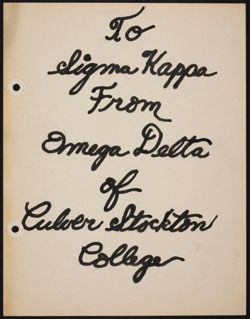 To
Sigma Kappa
From
Omega Delta
of
Culver Stockton
College